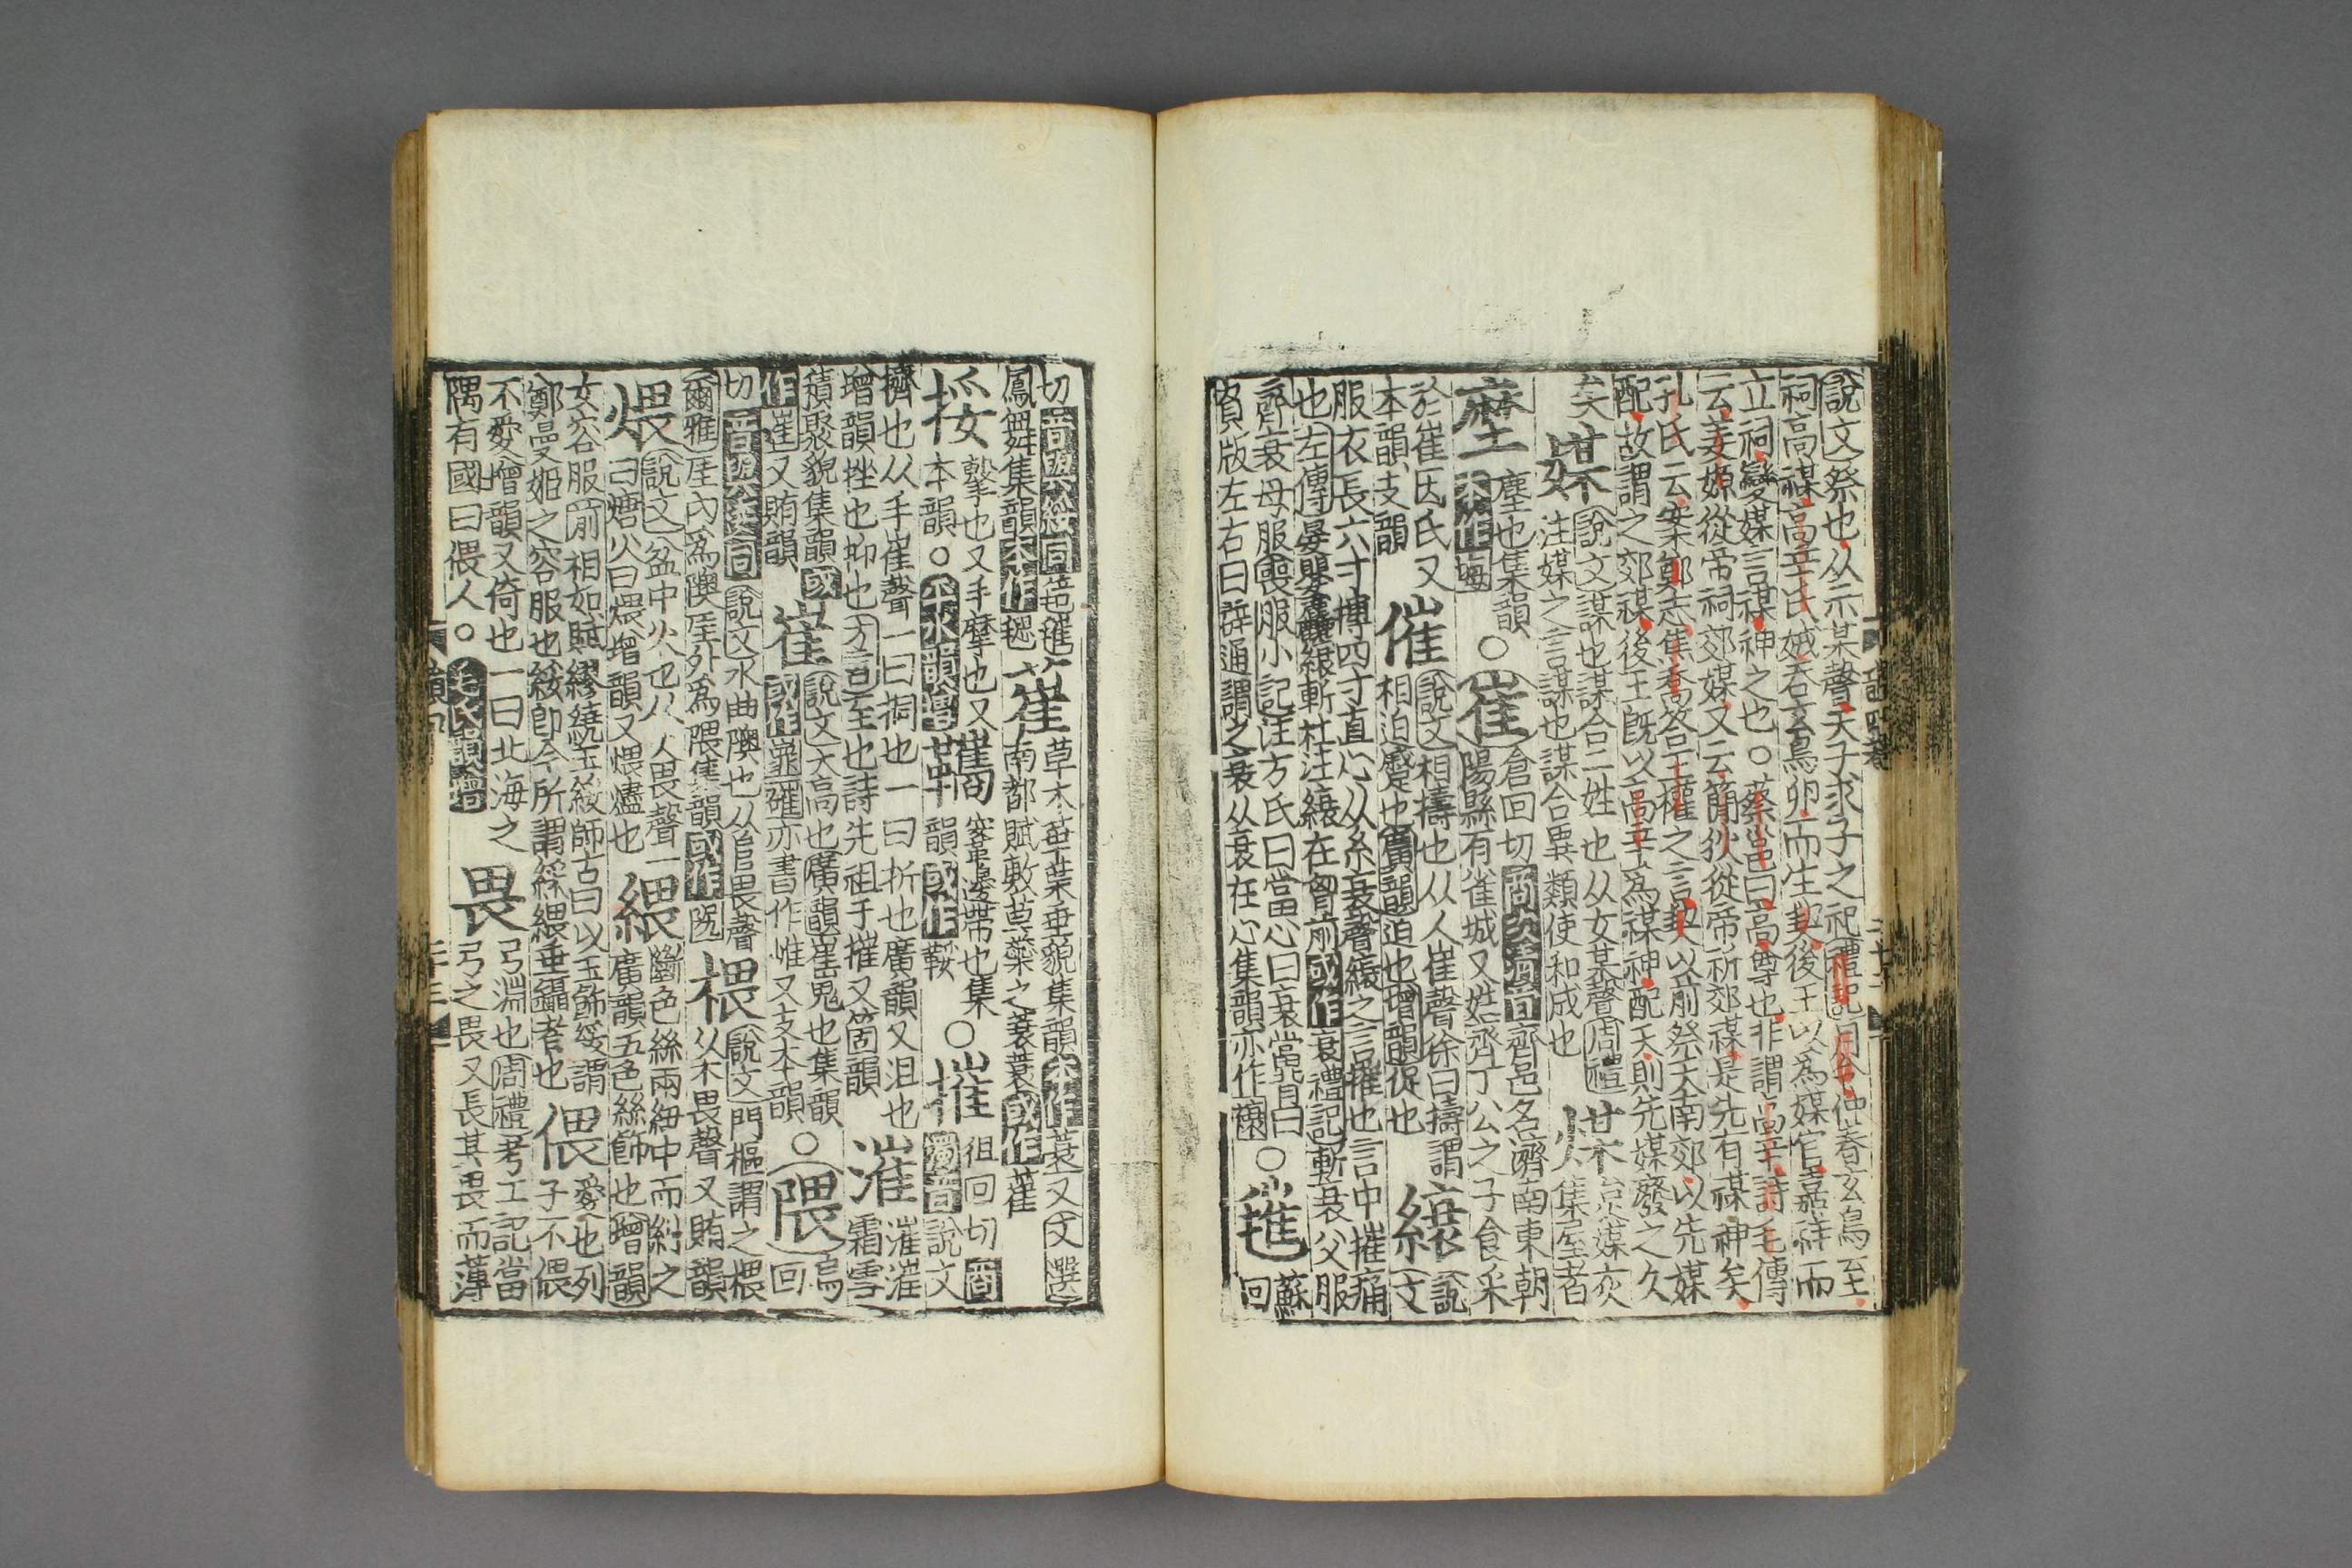 說文祭也从示某聲天子求子之祀禮記月令仲春玄鳥至
祠高禖高辛氏娀吞玄鳥卵而生契後王以為媒官嘉祥而
立祠變媒言禖神之也○蔡邕曰高尊也非謂高辛詩毛傳
云姜嫄從帝祠郊媒又云簡狄從帝祈郊禖是先有禖神矣
孔氏云案鄭志焦喬答王權之言契以前祭天南郊以先媒
配故謂之郊禖後王旣以高辛為禖神配天則先媒廢之久
矣媒說文謀也謀合二姓也从女某聲周禮
注媒之言謀也謀合異類使和成也煤炱煤灰集屋者
塺塵也集韻
○崔倉回切商次清音齊邑名濟南東朝
陽縣有崔城又姓齊丁公之子食采
於崔因氏又
本韻支韻催說文相擣也从人崔聲徐曰擣謂
相迫蹙也廣韻迫也增韻促也縗說文
服衣長六寸博四寸直心从糸衰聲縗之言摧也言中摧痛
也左傳晏嬰麤縗斬杜注縗在胷前國作衰禮記斬衰父服
齊衰母服喪服小記注方氏曰當心曰衰當背曰
負版左右曰辟通謂之衰从衰在心集韻亦作○蓷蘇回
切音與綏同
鳳舞集韻本作毸
蓷草木華葉垂貌集韻本作蕤又文選
南都賦敷華蘂之蓑蓑國作
挼擊也又手摩也又
本韻○平水韻增韉鞌邊帶也集
韻國作鞍
○摧徂回切商濁音說文
擠也从手崔聲一曰挏也一曰折也廣韻又沮也
增韻挫也抑也方言至也詩先祖于摧又箇韻漼漼漼霜雪
積聚貌集韻國作
漼又賄韻崔說文大高也廣韻崔嵬也集韻
國作嶊亦書作嶉又支本韻○隈烏回
切音與同說文水曲隩也从𨸏畏聲
爾雅厓內為隩厓外為隈集韻國作椳說文門樞謂之椳
从木畏聲又賄韻
煨說文盆中火也从火畏聲一
曰煻火曰煨增韻又煨燼也縨斷色絲兩紐中而紏之
廣韻五色絲飾也增韻
女容服前相如賦繆繞玉綏師古曰以玉飾綏謂
鄭曼姬之容服也綏即今所謂綵縨垂鑷者也偎愛也列
子不偎
不愛增韻又倚也一曰北海之
隅有國曰偎人○毛氏韻增畏弓淵也周禮考工記當
弓之畏又長其畏而薄